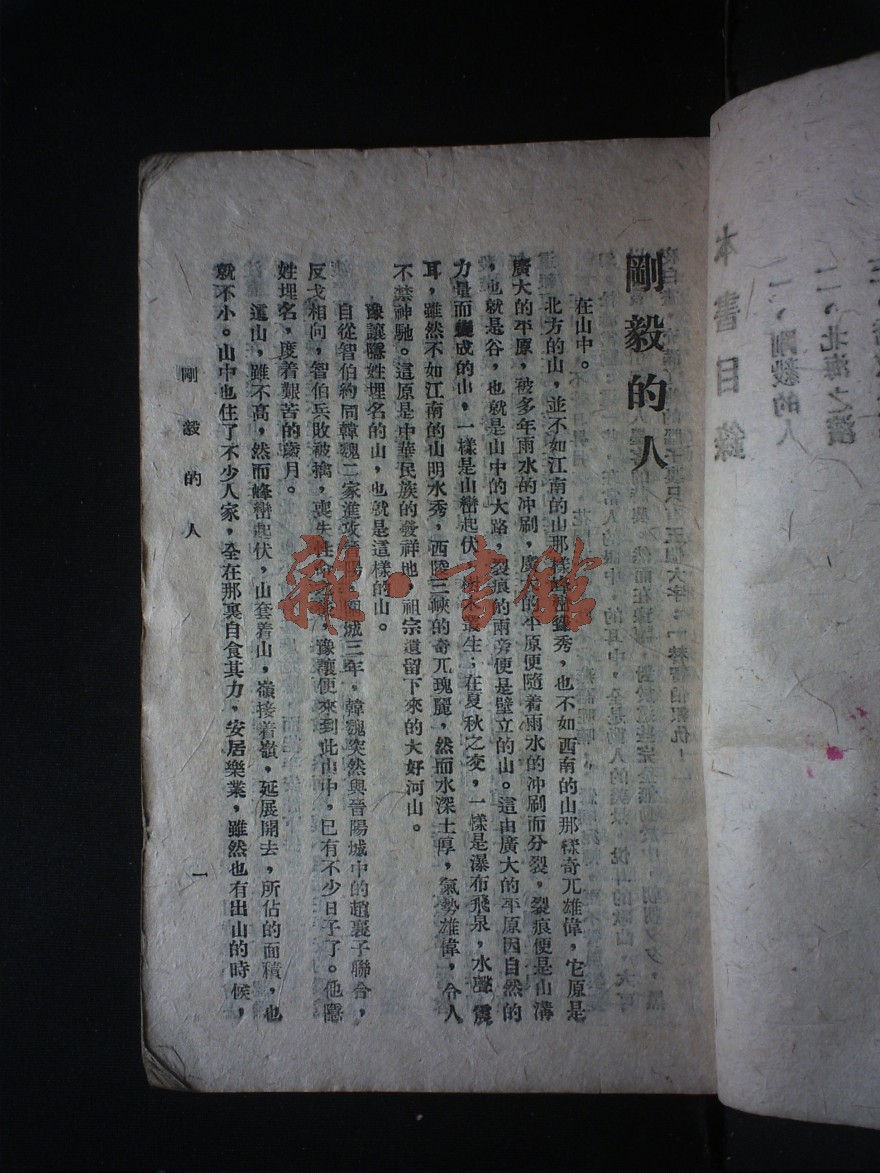 剛毅的人
在山中。
北方的山，並不如江南的山那樣峰巒聳秀，也不如西南的山那樣奇兀雄偉，它原是
廣大的平原，被多年雨水的冲刷，廣大的平原便隨着雨水的冲刷而分裂，裂痕便是山溝
，也就是谷，也就是山中的大路，裂痕的兩旁便是壁立的山。這由廣大的平原因自然的
力量而變成的山，一樣是山巒起伏，樹木叢生；在夏秋之交，一樣是瀑布飛泉，水聲震
耳，雖然不如江南的山明水秀，西陵三峽的奇兀瑰麗，然而水深土厚，氣勢雄偉，令人
不禁神馳。這原是中華民族的發祥地，祖宗遺留下來的大好河山。
豫讓隱姓埋名的山，也就是這樣的山。
自從智伯約同韓魏二家進攻晉陽，圍城三年，韓魏突然與晉陽城中的趙襄子聯合，
反戈相向，智伯兵敗被擒，喪失性命之後，豫讓便來到此山中，已有不少日子了。他隱
姓埋名，度着艱苦的歲月。
這山，雖不高，然而峰巒起伏，山套着山，嶺接着嶺，延展開去，所佔的面積，也
就不小。山中也住了不少人家，全在那裏自食其力，安居樂業，雖然也有出山的時候，
剛毅的人
一
本書目錄
一、剛毅的人
二、北海之濱
雜·書館